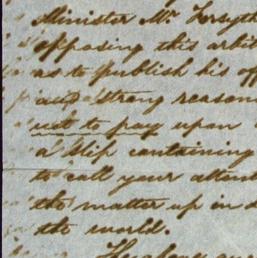 Minister Mr. Forsyth
opposing this arbit
as to publish his off
and strong reason
not to pay upon
a slip containing
to call your atten
the matter up in
the world.